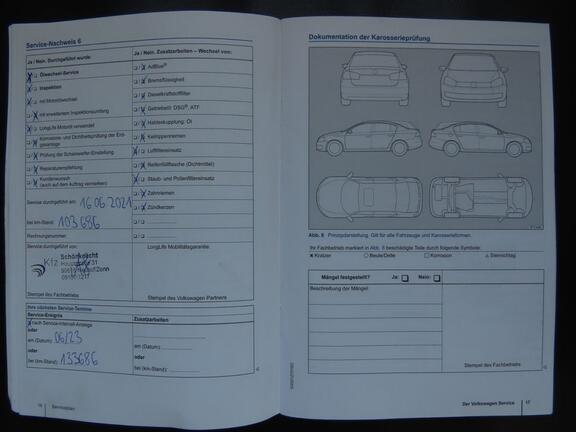 Service-Nachweis 6
Ja / Nein. Durchgeführt wurde:
Ölwechsel-Service
Inspektion
mit Motorölwechsel
mit erweitertem Inspektionsumfang
LongLife Motoröl verwendet
Korrosions- und Dichtheitsprüfung der Erdgasanlage
Prüfung der Scheinwerfer-Einstellung
Reparaturempfehlung
Kundenwunsch
(auch auf dem Auftrag vermerken)
Service durchgeführt am: 16.06.2021
bei km-Stand: 103 686
Rechnungsnummer:
Service durchgeführt von:
Kfz
Stempel des Fachbetriebs
Ja / Nein. Zusatzarbeiten – Wechsel von:
AdBlue®
Bremsflüssigkeit
Dieselkraftstofffilter
Getriebeöl: DSG®, ATF
Haldexkupplung: Öl
Keilrippenriemen
Luftfiltereinsatz
Reifenfüllflasche (Dichtmittel)
Staub- und Pollenfiltereinsatz
Zahnriemen
Zündkerzen
LongLife Mobilitätsgarantie:
Stempel des Volkswagen Partners
Ihre nächsten Service-Termine
Service-Ereignis
nach Service-Intervall-Anzeige
oder
am (Datum): 06/23
oder
bei (km-Stand): 133686
Zusatzarbeiten:
am (Datum):
oder
bei (km-Stand):
Serviceplan
Dokumentation der Karosserieprüfung
Abb. 8 Prinzipdarstellung. Gilt für alle Fahrzeuge und Karosserieformen.
Ihr Fachbetrieb markiert in Abb. 8 beschädigte Teile durch folgende Symbole:
Kratzer Beule/Delle Korrosion Steinschlag
Mängel festgestellt? Ja: Nein:
Beschreibung der Mängel:
Stempel des Fachbetriebs
Der Volkswagen Service